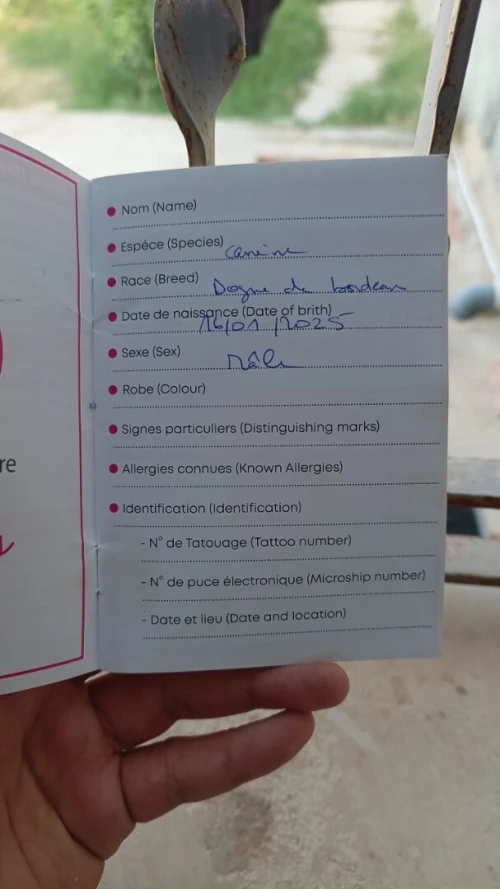 Nom (Name)
Espéce (Species) canine
Race (Breed) Dogue de bordeau
Date de naissance (Date of brith)
16/01/2025
Sexe (Sex) Mâle
Robe (Colour)
Signes particuliers (Distinguishing marks)
Allergies connues (Known Allergies)
Identification (Identification)
- N° de Tatouage (Tattoo number)
- N° de puce électronique (Microship number)
- Date et lieu (Date and location)
re